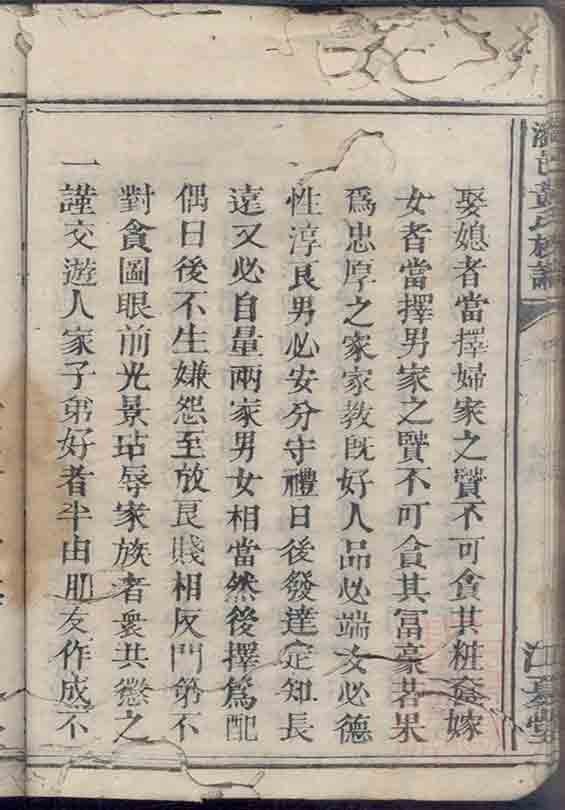 邑黃氏族譜
江夏堂
娶媳者當擇婦家之賢不可貪其粧奩嫁
女者當擇男家之賢不可貪其富豪若果
爲忠厚之家家敎旣好人品必端女必德
性淳良男必安分守禮日後發達定知長
遠又必自量兩家男女相當然後擇爲配
偶日後不生嫌怨至放良賤相反門第不
對貪圖眼前光景玷辱家族者衆共懲之
一謹交遊人家子弟好者半由朋友作成不